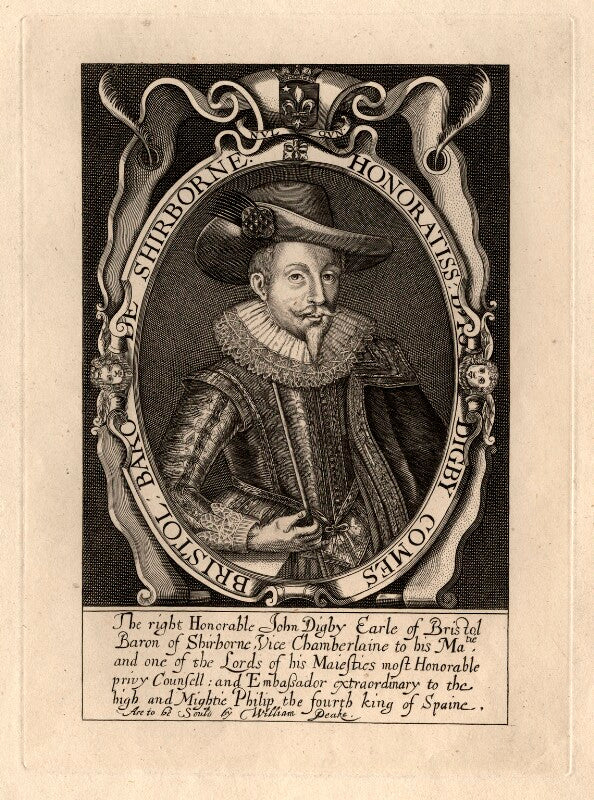 NVL QVE
HONORATISS: D. I. DIGBY COMES
BRISTOL: BARO DE SHIRBORNE.
The right Honorable John Digby Earle of Bristol
Baron of Shirborne, Vice Chamberlaine to his Ma.tie
and one of the Lords of his Maiesties most Honorable
privy Counsell: and Embaßador extraordinary to the
high and Mightie Philip the fourth king of Spaine.
Are to be Sould by William Peake.